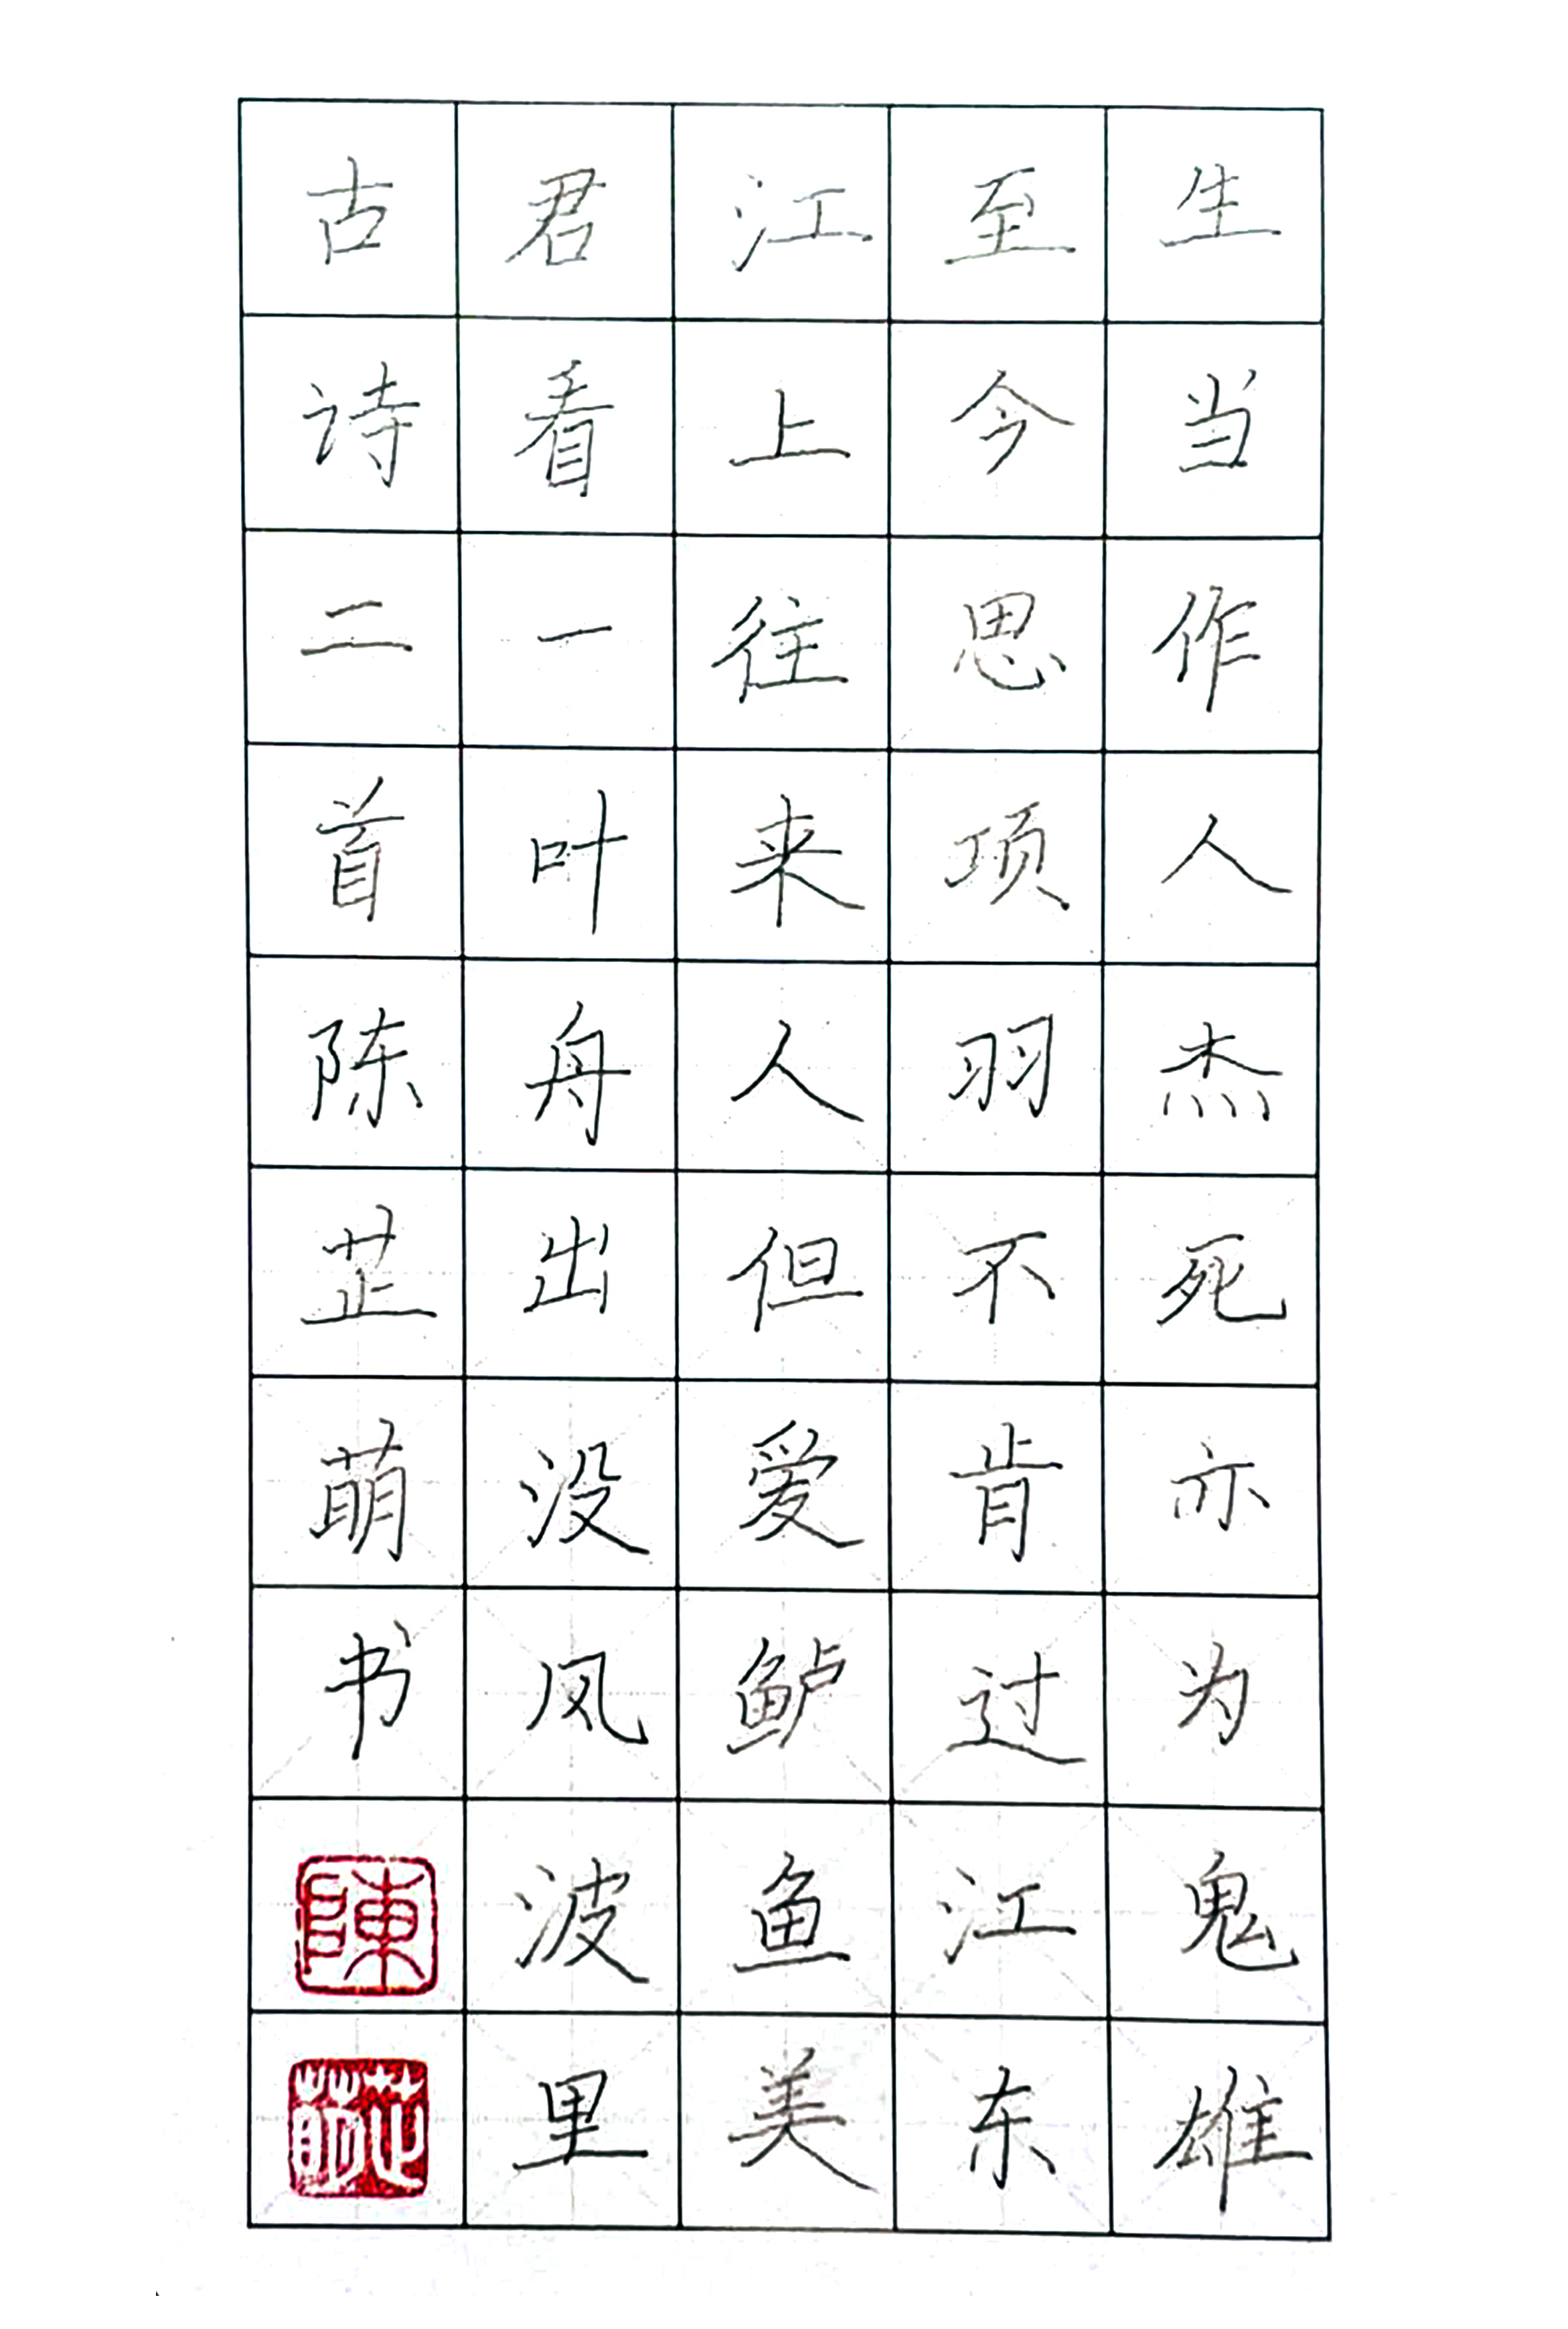 生当作人杰死亦为鬼雄
至今思项羽不肯过江东
江上往来人但爱鲈鱼美
君看一叶舟出没凤波里
古诗二首陈芷萌书
陳
芷萌